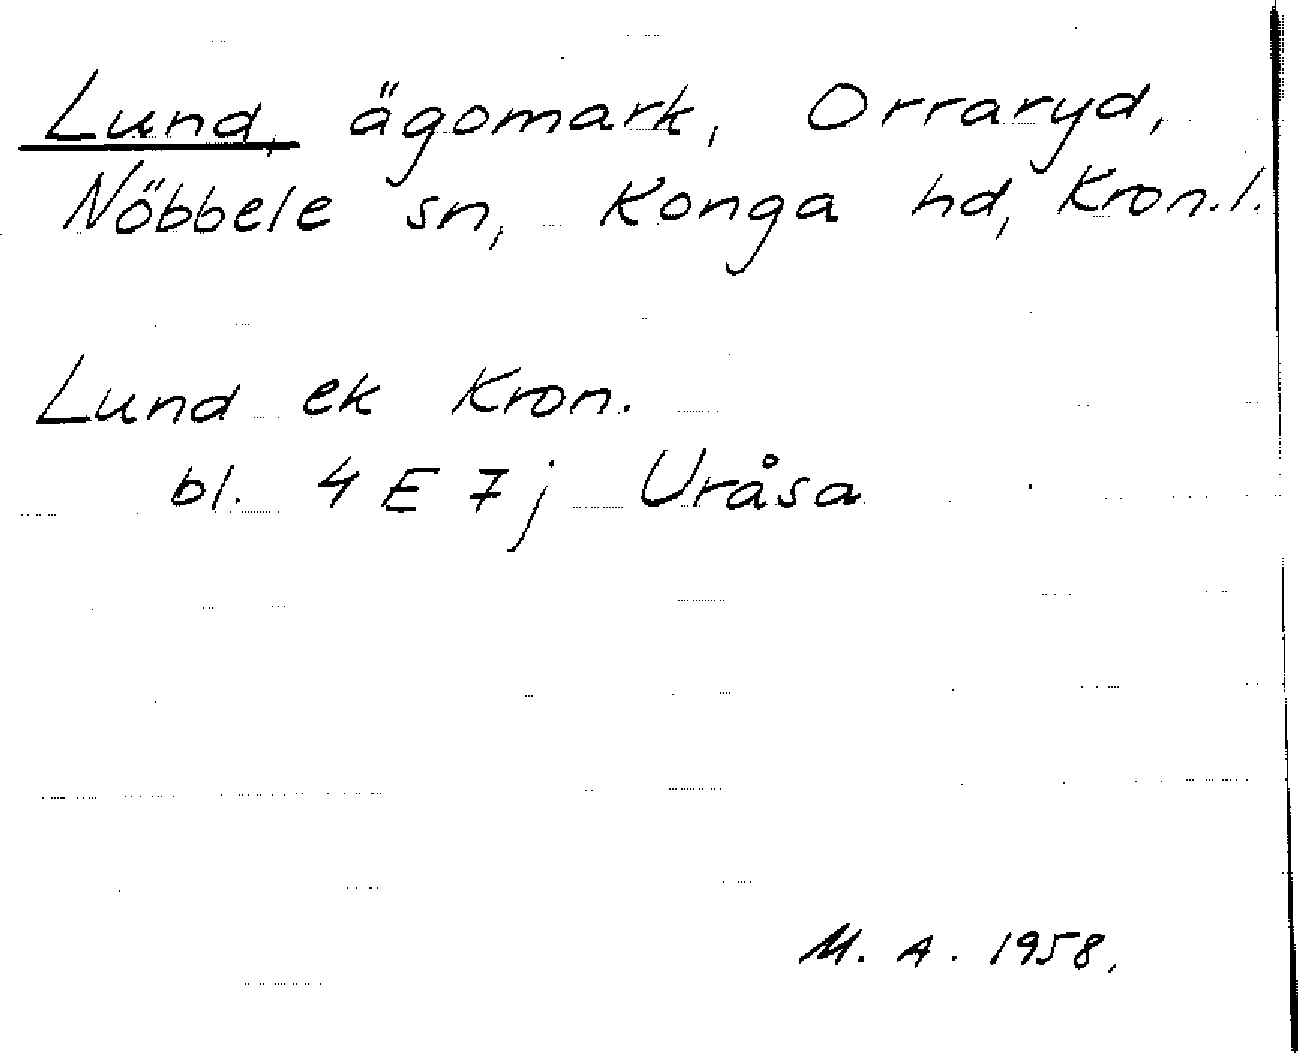 Lund, ägomark, Orraryd,
Nöbbele sn, Konga hd, Kron.l.
Lund ek Kron.
bl. 4 E 7 j Uråsa
M. A. 1958.